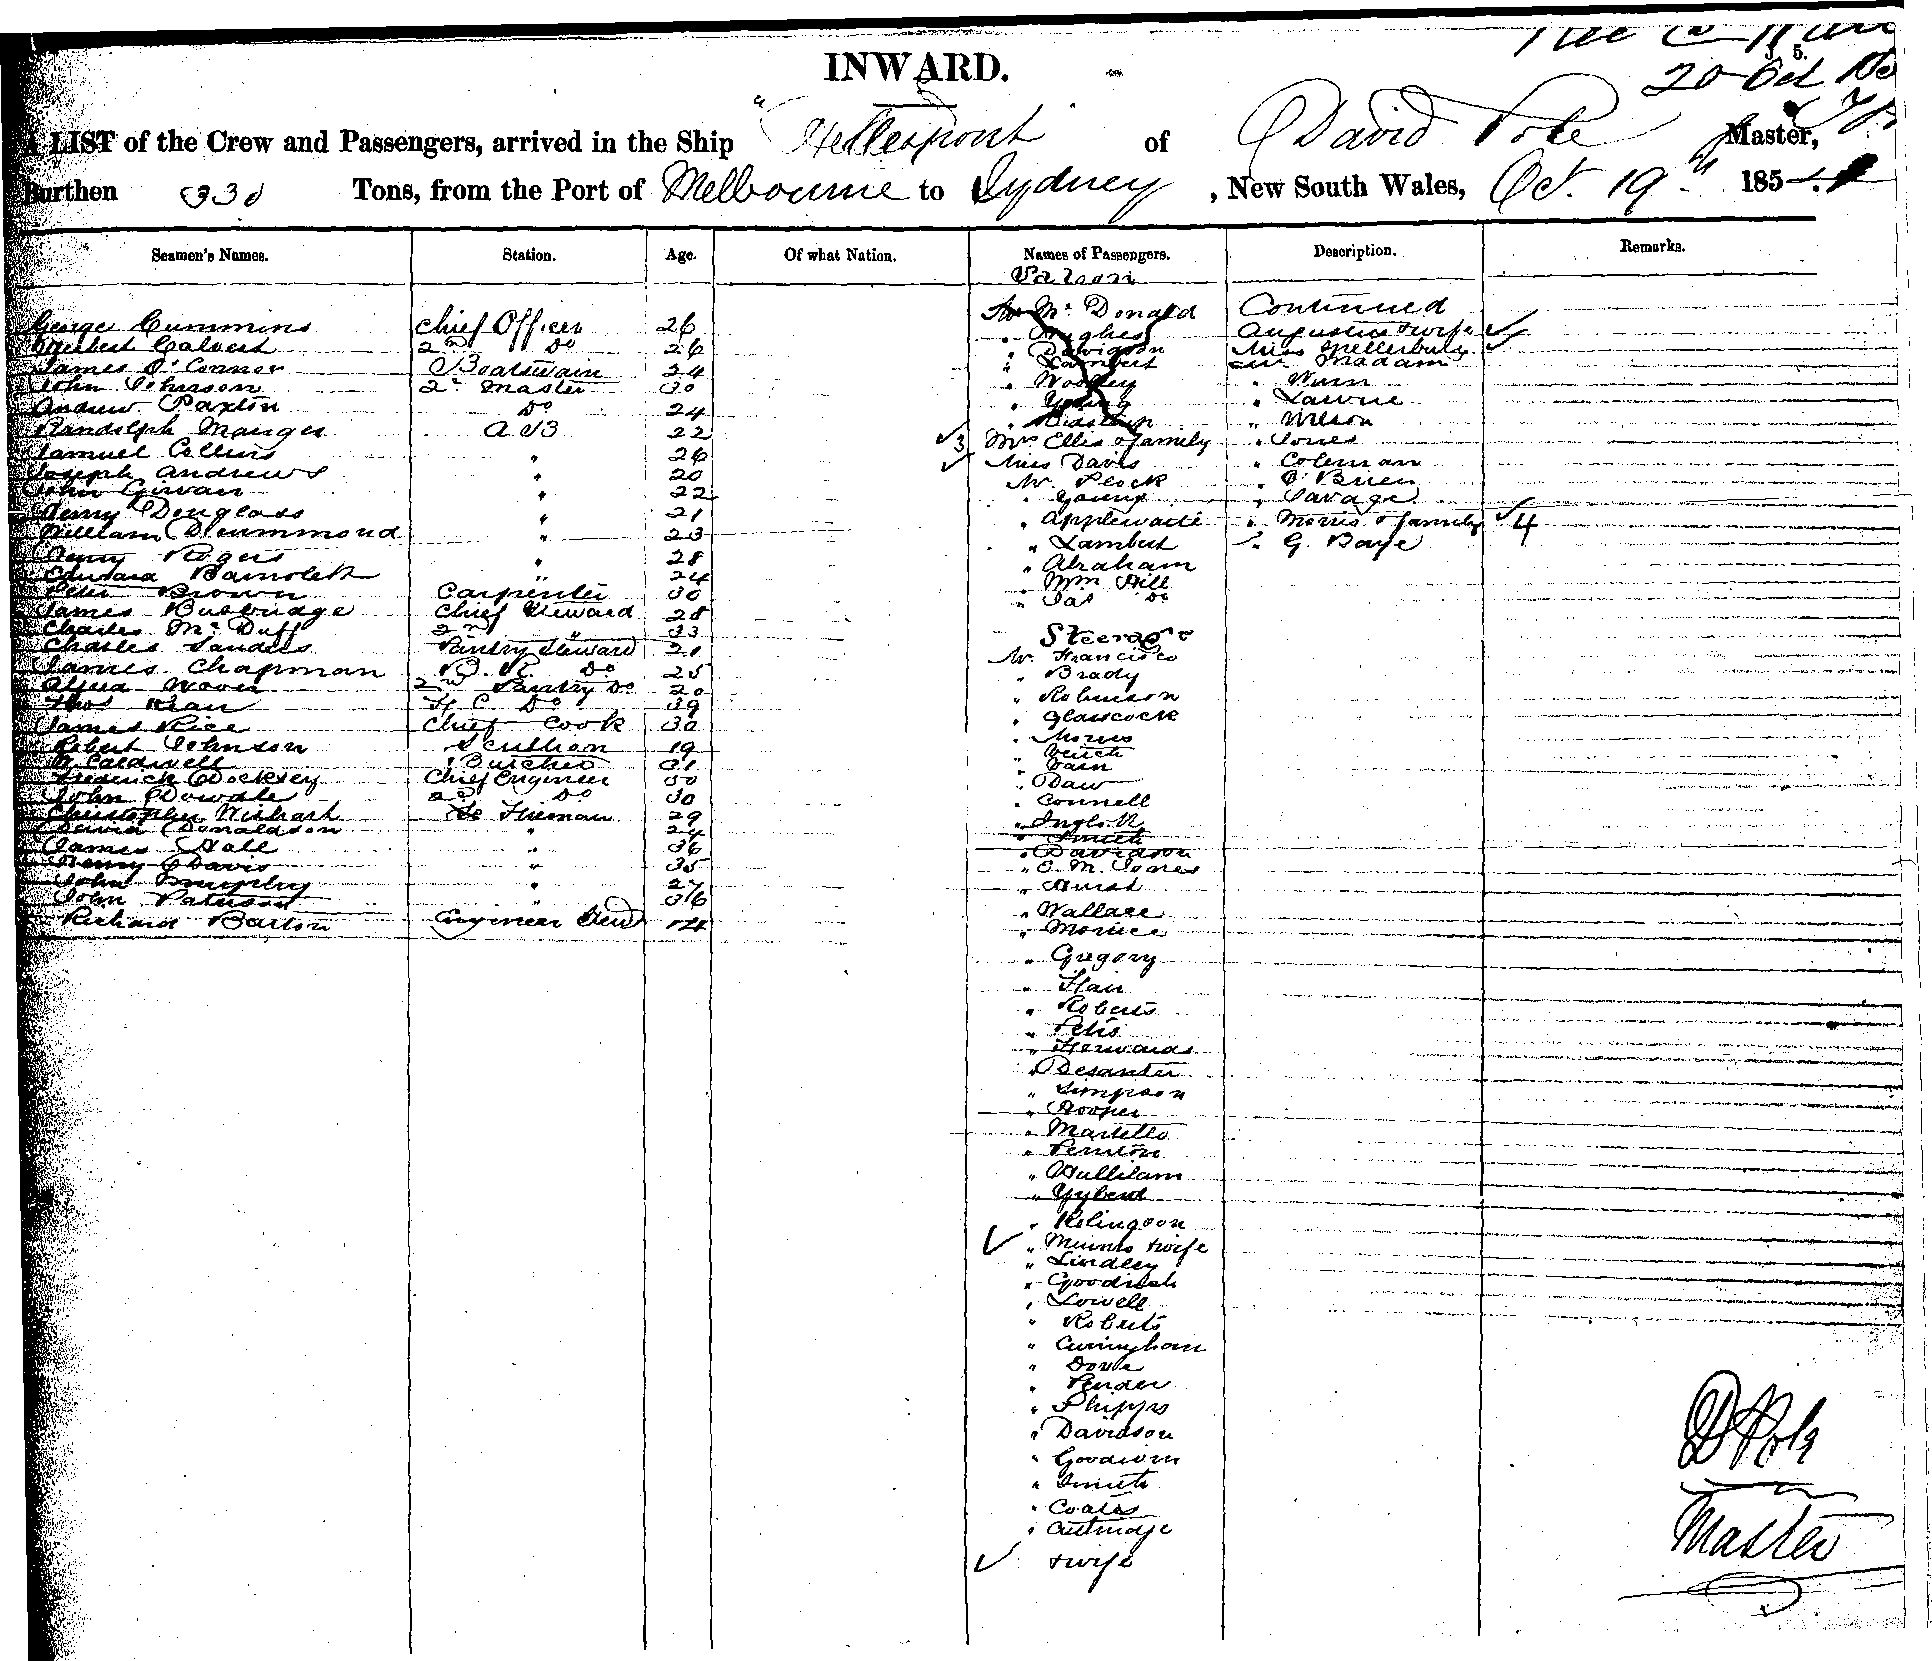 INWARD.
20 Oct
A LIST of the Crew and Passengers, arrived in the Ship "Hellespont of David Pole Master,
Burthen 330 Tons, from the Port of Melbourne to Sydney, New South Wales, Oct. 19th 185
Seamen's Names. Station. Age. Of what Nation. Names of Passengers. Description. Remarks.
Saloon
George Cummins Chief Officer 26 Mr McDonald Continued
Calvert 2nd Do 26 Hughes Augustus & wife
James O'Connor Boatswain 24 Davidson Miss
John Johnson 2nd Master 30 Lambert Mr Madam
Andrew Paxton Do 24 Woolley " Nunn
Randolph Manger A B 22 " Young " Lawrie
Samuel Collins " 26 " Wilson
Joseph Andrews " 20 3 Mrs Ellis & family " Jones
John Givan " 22 Miss Davis " Coleman
Henry Douglass " 21 Mr Plock " O'Brien
William Drummond " 23 " Young " Savage
Henry Rogers " 28 " Applewaite " Morris & family 4
Edward " 24 " Lambert " G. Baye
Peter Brown Carpenter 30 " Abraham
James Busbridge Chief Steward 28 " Wm Hill
Charles McDuff 2nd " 33 " Jas Do
Charles Sanders Pantry Steward 21 Steerage
James Chapman B. R. Do 25 Mr Francisco
2nd Pantry Do 20 " Brady
Thos Kean F. C. Do 39 " Robinson
James Rice Chief Cook 30 " Glasscock
Robert Johnson Scullion 19 " Morris
Caldwell Butcher 31 " Veitch
Frederick Docksey Chief Engineer 30 " Vain
John Dowdle 2nd Do 30 " Daw
Christopher Wishart Fireman 29 " Connell
David Donaldson " 24 " Inglott
James Hall " 36 " Smith
Henry Davis " 35 " Davidson
John Murphy " 27 " C. M. Jones
John Paterson " 36 " Hurst
Richard Barton Engineer Stewd 14 " Wallace
" Morrice
" Gregory
" Hair
" Roberts
" Petis
"
" Desanter
" Simpson
" Hooper
" Martello
" Peniton
" Hullilam
"
" Kelingoon
" Munro & wife
" Lindley
" Goodrich
" Lowell
" Roberts
" Cunningham
" Dove
" Pender
" Phipps
" Davidson
" Goodwin
" Smith
" Coates
" Cutmore
& wife
D Pole
Master